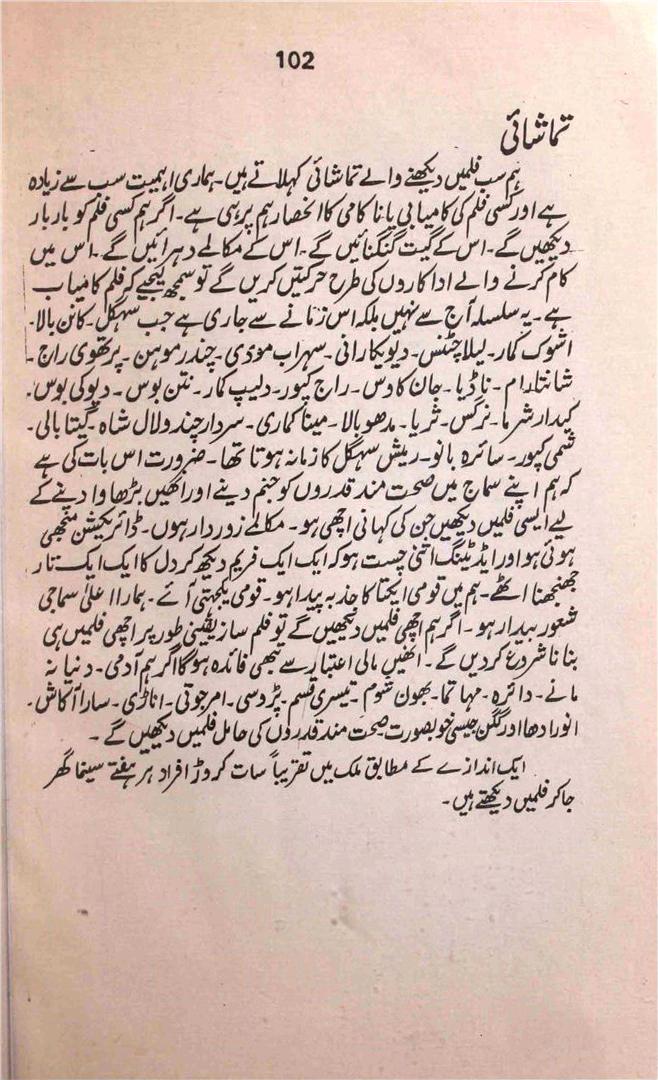 102
تماشائی
ہم سب فلمیں دیکھنے والے تماشائی کہلاتے ہیں۔ ہماری اہمیت سب سے زیادہ
ہے اور کسی فلم کی کامیابی یا ناکامی کا انحصار ہم پر ہی ہے۔ اگر ہم کسی فلم کو بار بار
دیکھیں گے۔ اس کے گیت گنگنائیں گے۔ اس کے مکالمے دہرائیں گے۔ اس میں
کام کرنے والے اداکاروں کی طرح حرکتیں کریں گے تو سمجھ لیجیے کہ فلم کامیاب
ہے۔ یہ سلسلہ آج سے نہیں بلکہ اس زمانے سے جاری ہے جب سہگل۔ کانن بالا۔
اشوک کمار۔ لیلا چٹنس۔ دیویکا رانی۔ سہراب مودی۔ چندر موہن۔ پرتھوی راج۔
شانتارام۔ ناڈیا۔ جان کاوس۔ راج کپور۔ دلیپ کمار۔ نتن بوس۔ دیوکی بوس۔
کیدار شرما۔ نرگس۔ ثریا۔ مدھو بالا۔ مینا کماری۔ سردار چندولال شاہ۔ گیتا بالی۔
شمی کپور۔ سائرہ بانو۔ ریش سہگل کا زمانہ ہوتا تھا۔ ضرورت اس بات کی ہے
کہ ہم اپنے سماج میں صحت مند قدروں کو جنم دینے اور انھیں بڑھاوا دینے کے
لیے ایسی فلمیں دیکھیں جن کی کہانی اچھی ہو۔ مکالمے زوردار ہوں۔ ڈائریکشن منجھی
ہوئی ہو اور ایڈیٹنگ اتنی چست ہو کہ ایک ایک فریم دیکھ کر دل کا ایک ایک تار
جھنجھنا اٹھے۔ ہم میں قومی ایکتا کا جذبہ پیدا ہو۔ قومی یکجہتی آئے۔ ہمارا اعلیٰ سماجی
شعور بیدار ہو۔ اگر ہم اچھی فلمیں دیکھیں گے تو فلم ساز یقینی طور پر اچھی فلمیں ہی
بنانا شروع کردیں گے۔ انھیں مالی اعتبار سے تبھی فائدہ ہوگا اگر ہم آدمی۔ دنیا نہ
مانے۔ دائرہ۔ مہاتما۔ بھون شوم۔ تیسری قسم۔ پڑوسی۔ امر جوتی۔ اناڑی۔ سارا آکاش۔
انورادھا اور گگن جیسی خوبصورت صحت مند قدروں کی حامل فلمیں دیکھیں گے۔
ایک اندازے کے مطابق ملک میں تقریباً سات کروڑ افراد ہر ہفتے سینما گھر
جا کر فلمیں دیکھتے ہیں۔